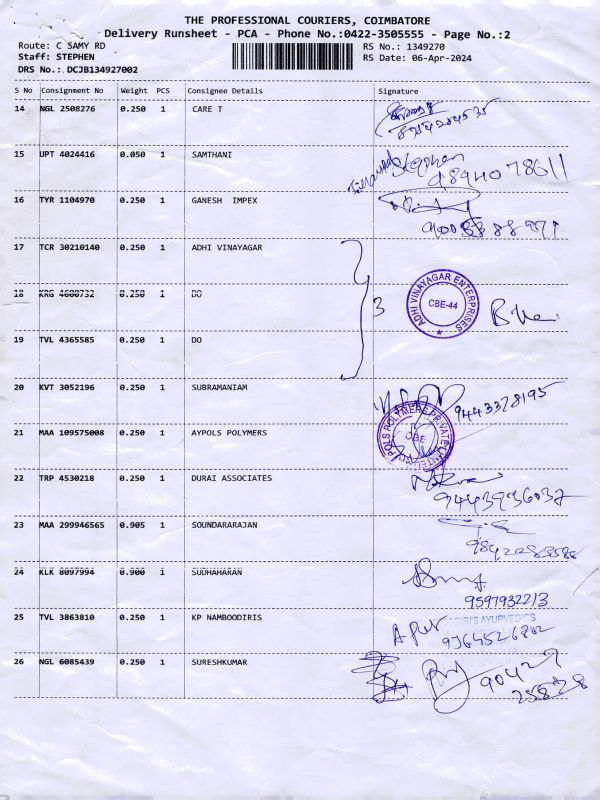 THE PROFESSIONAL COURIERS, COIMBATORE
Delivery Runsheet - PCA - Phone No.:0422-3505555 - Page No.:2
Route: C SAMY RD
RS No.: 1349270
Staff: STEPHEN
RS Date: 06-Apr-2024
DRS No.: DCJB134927002
S No Consignment No Weight PCS Consignee Details Signature
14 NGL 2508276 0.250 1 CARE T
15 UPT 4024416 0.050 1 SAMTHANI
Stephen
9894078611
16 TYR 1104970 0.250 1 GANESH IMPEX
17 TCR 30210140 0.250 1 ADHI VINAYAGAR
18 KRG 4600732 0.250 1 DO
3
ADHI VINAYAGAR ENTERPRISES
CBE-44
19 TVL 4365585 0.250 1 DO
20 KVT 3052196 0.250 1 SUBRAMANIAM
9443328195
21 MAA 109575008 0.250 1 AYPOLS POLYMERS
CBE
22 TRP 4530218 0.250 1 DURAI ASSOCIATES
9443936037
23 MAA 299946565 0.905 1 SOUNDARARAJAN
24 KLK 8097994 0.900 1 SUDHAHARAN
9597932213
25 TVL 3863810 0.250 1 KP NAMBOODIRIS
AYURVEDICS
26 NGL 6085439 0.250 1 SURESHKUMAR
90427
25828